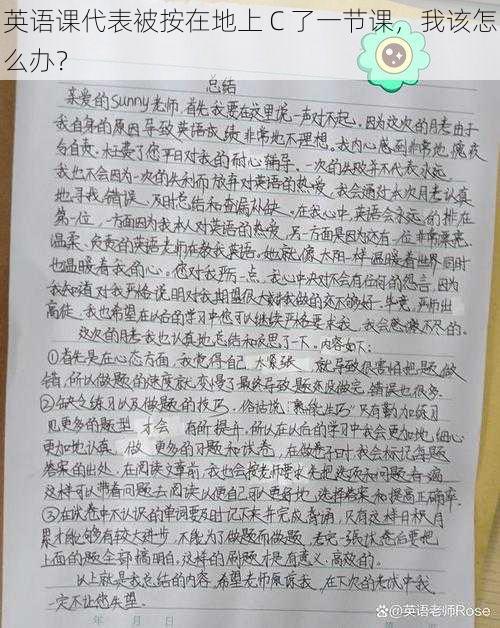 英语课代表被按在地上C了一节课，我该怎
么办？
总结
亲爱的Sunny老师，首先我要在这里说一声对不起，因为这次的月考由于
我自身的原因导致英语成绩非常地不理想。我内心感到非常地
自责，枉费了您平日对我的耐心辅导。一次的失败并不代表永远，
我也不会因为一次的失利而放弃对英语的热爱，我会通过本次月考认真
地寻找错误、及时总结和查漏补缺。在我心中，英语会永远的排在
第一位，一方面因为我本人对英语的热爱，另一方面是因为还有一位非常漂亮、
温柔、负责的英语老师在教我英语。她就像太阳一样温暖着世界同时
也温暖着我的心。您对我严厉一点，我心中决对不会有任何的怨言，因为
我知道对我严格说明对我期望很大对我做的还不够好，毕竟，严师出
高徒，我也希望在以后的学习中您可以继续严格要求我，我会感激不尽的。
这次的月考我也认真地总结和反思了一下。内容如下：
①首先是在心态方面，我觉得自己太紧张，就导致很害怕把题做
错，所以做题的速度就变慢了最终导致题没做完，错误也很多。
②缺乏练习以及做题的技巧，俗话说“熟能生巧”只有勤加练习
见更多的题型，才会有所提升，所以在以后的学习中我会更加地细心
更加地认真，做更多的习题和试卷，在做卷子时我会标记每题
答案的出处，在阅读文章前，我也会按老师要求先把选项和问题看一遍
这样可以带着问题去阅读以便自己可以更好地选择答案和提高正确率。
③在试卷中不认识的单词要及时记下来并完成背诵，只有这样日积月
累才能够有较大进步，不能为了做题而做题，看完一张试卷后要把
上面的题全部搞明白，这样的刷题才是有意义、高效的。
以上就是我总结的内容，希望老师原谅我，在下次的考试中我
一定不让您失望。
年 月 日
@英语老师Rose